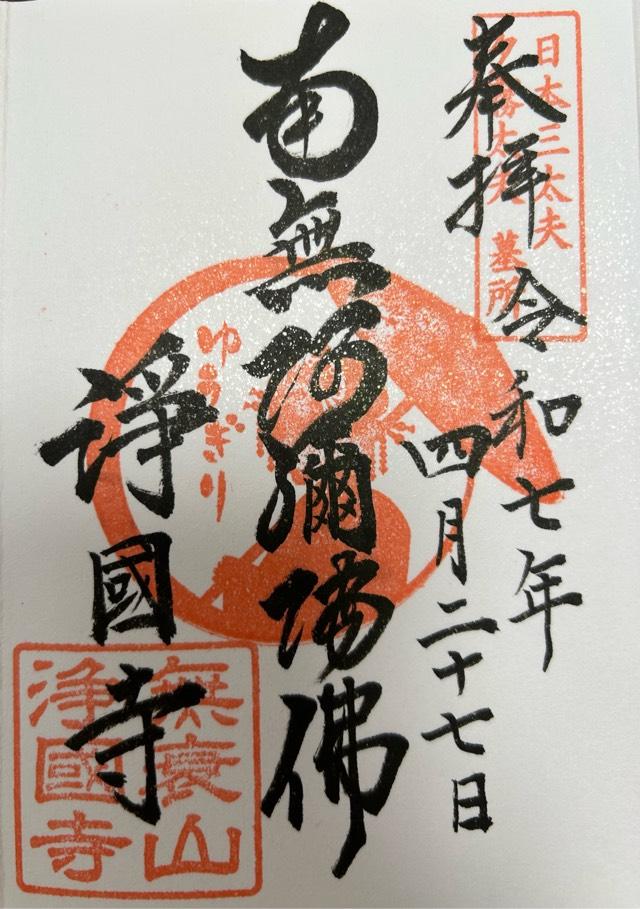 奉拝
令和七年
四月二十七日
日本三太夫
夕霧太夫 墓所
南無阿彌陀佛
ゆうぎり
淨國寺
無衰山
浄國寺